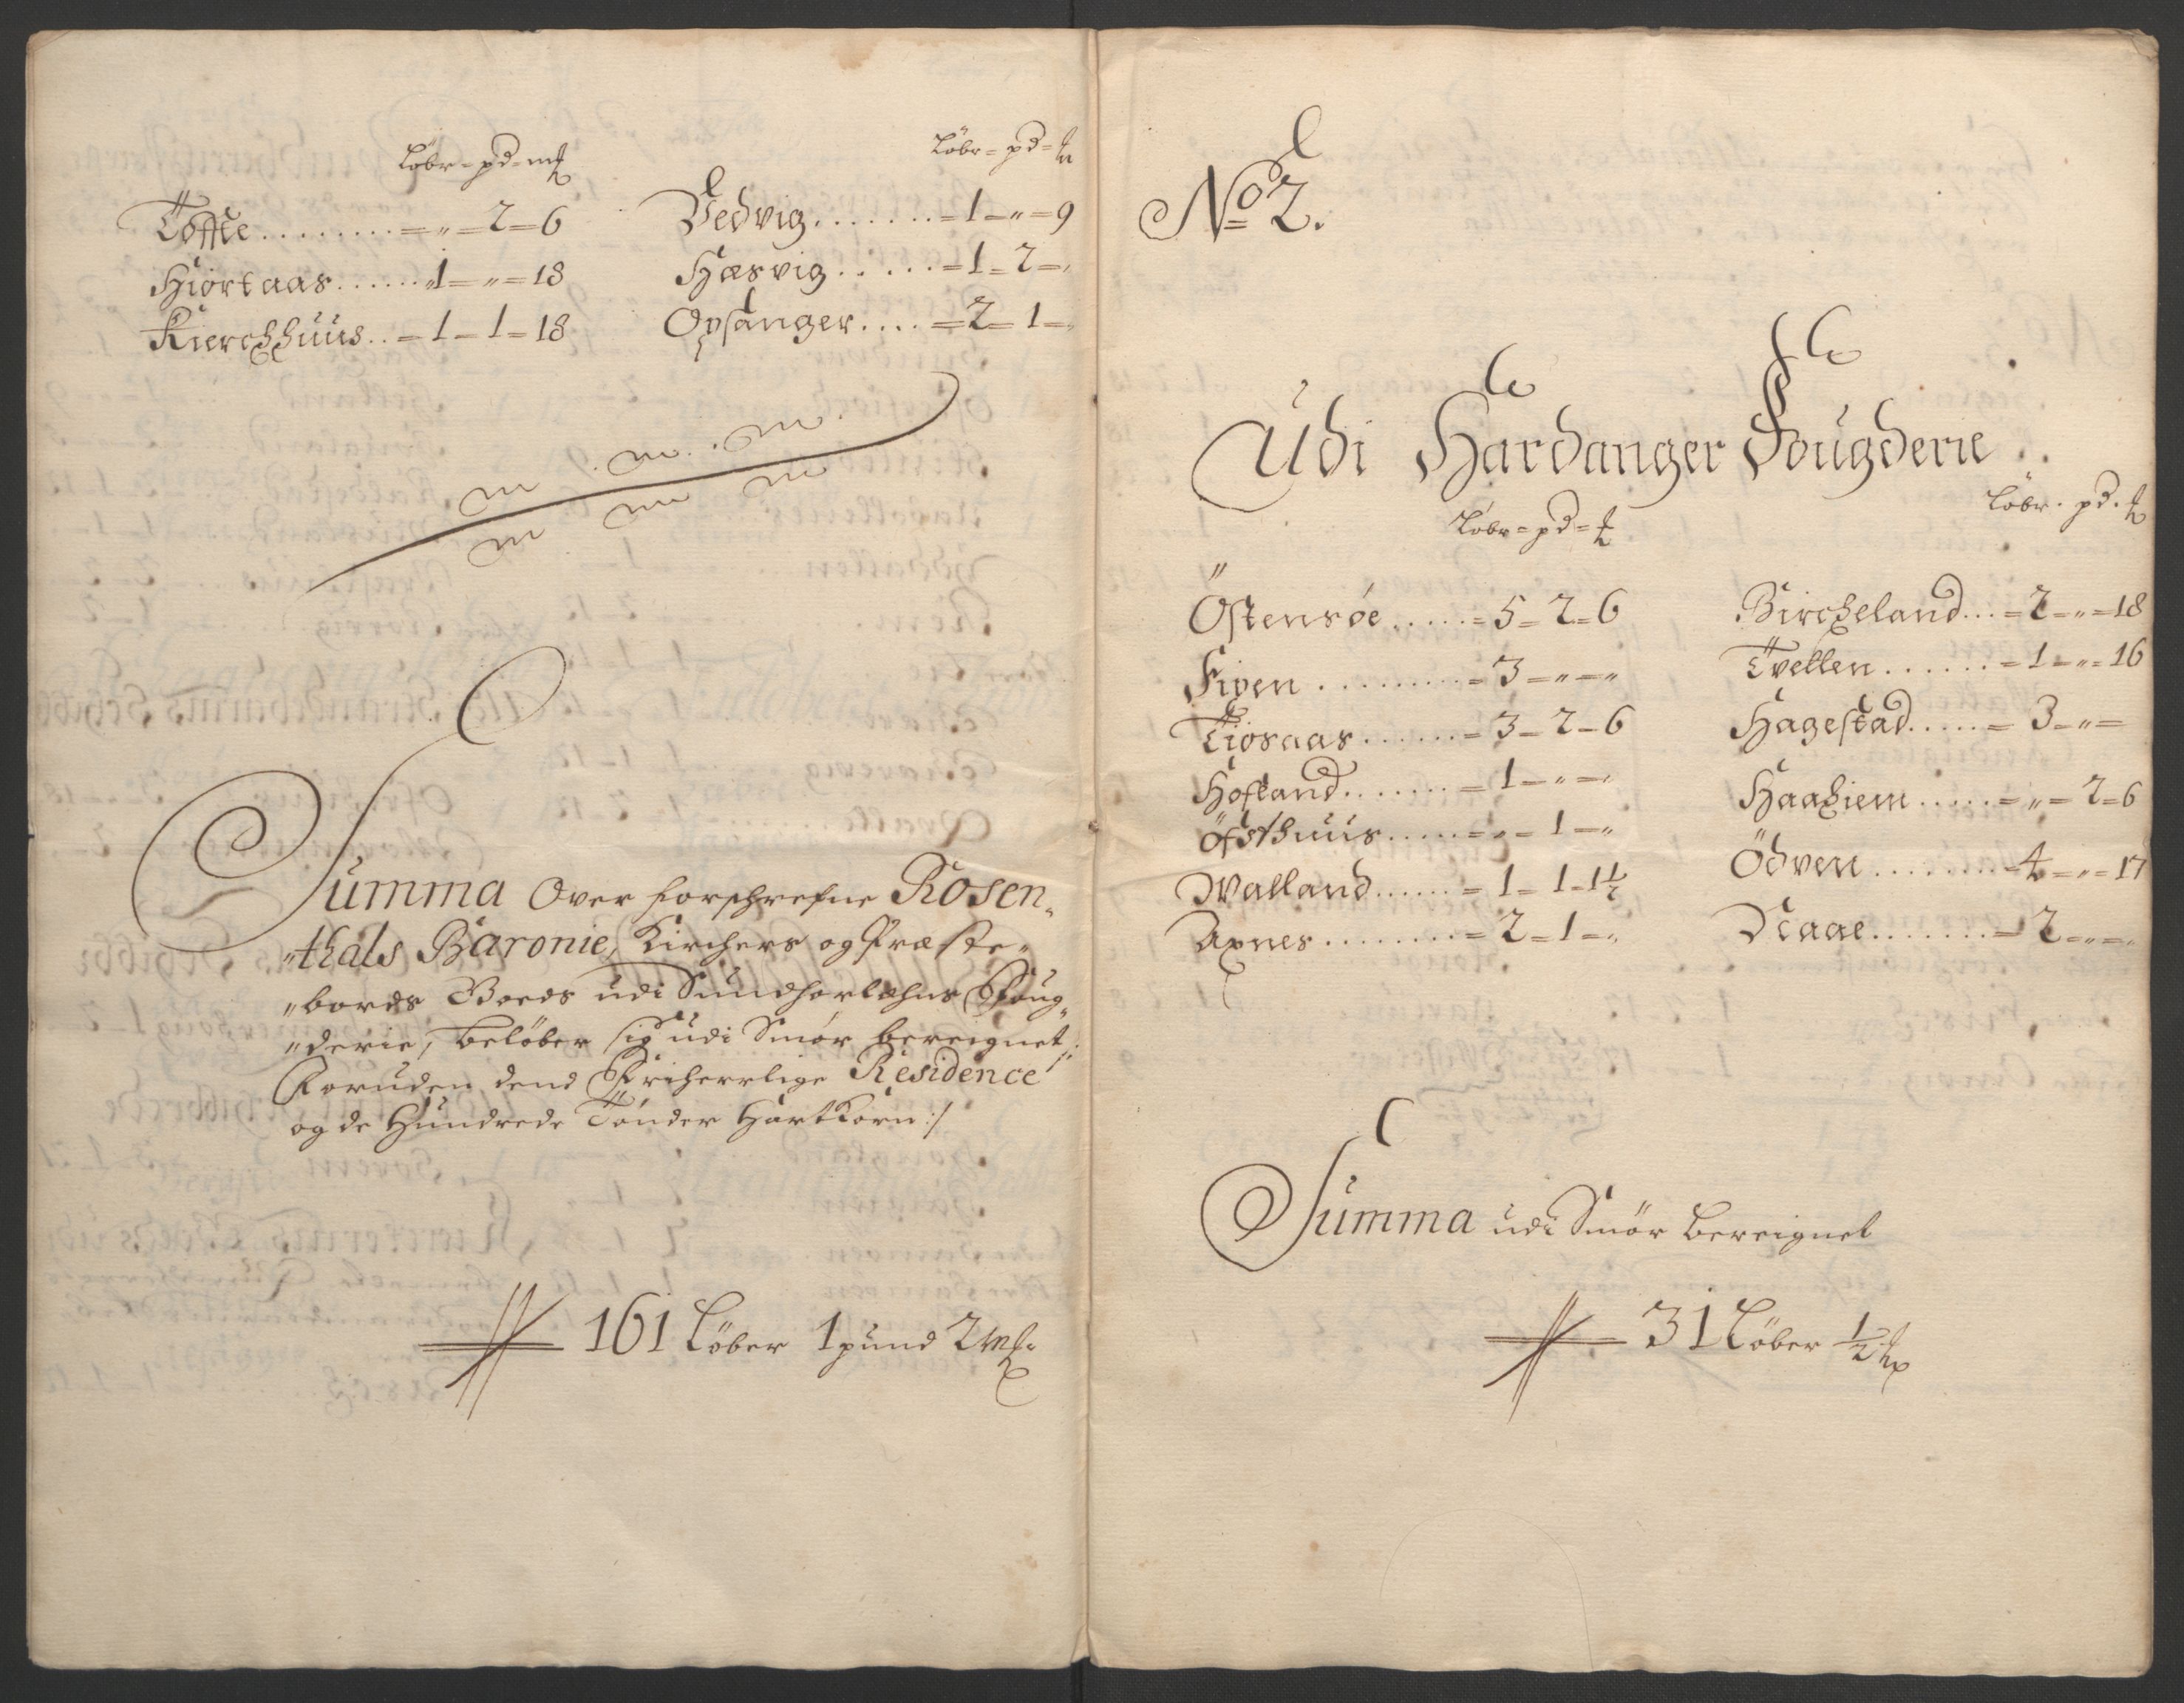 Löbr = pd = m℔
Töffte ......... = " = 2 = 6
Hiortaas ...... " 1 = " = 18
Kierchhuus .. = 1 = 1 = 18
Löbr = pd = ℔
Vedvig ....... = 1 = " = 9
Hæsvig ...... = 1 = 2 = "
Opsanger .... = 2 = 1 = "
Summa Over forschrefne Rosen„
„thals Baronie, Kirchers og Præste„
„bords Goeds udi Sundhorlehns Foug„
„derie, Belöber sig udi Smör bereignet
Foruden dend Friherrlige Residence
og de Hundrede Tönder Hartkorn :/
161 Löber 1 pund 2 m℔
No 2.
Udi Hardanger Fougderie
Löbr = pd = ℔
Östensöe ..... = 5 = 2 = 6
Fiven ......... = 3 = " = "
Tiosaas ...... = 3 = 2 = 6
Hofland ....... = 1 = " = "
Öfsthuus ..... = " = 1 = "
Walland ...... = 1 = 1 = 1½
Axnes ........ = 2 = 1 = "
Löbr . pd . ℔
Bircheland ... = 2 = " = 18
Tvetten ...... = 1 = " = 16
Hagestad ..... = 3 = " =
Haaheim ..... = " = 2 = 6
Ödven ....... = 4 = " = 17
Naae ....... = 2 = " = "
Summa udi Smör bereignet
31 Löber ½ ℔